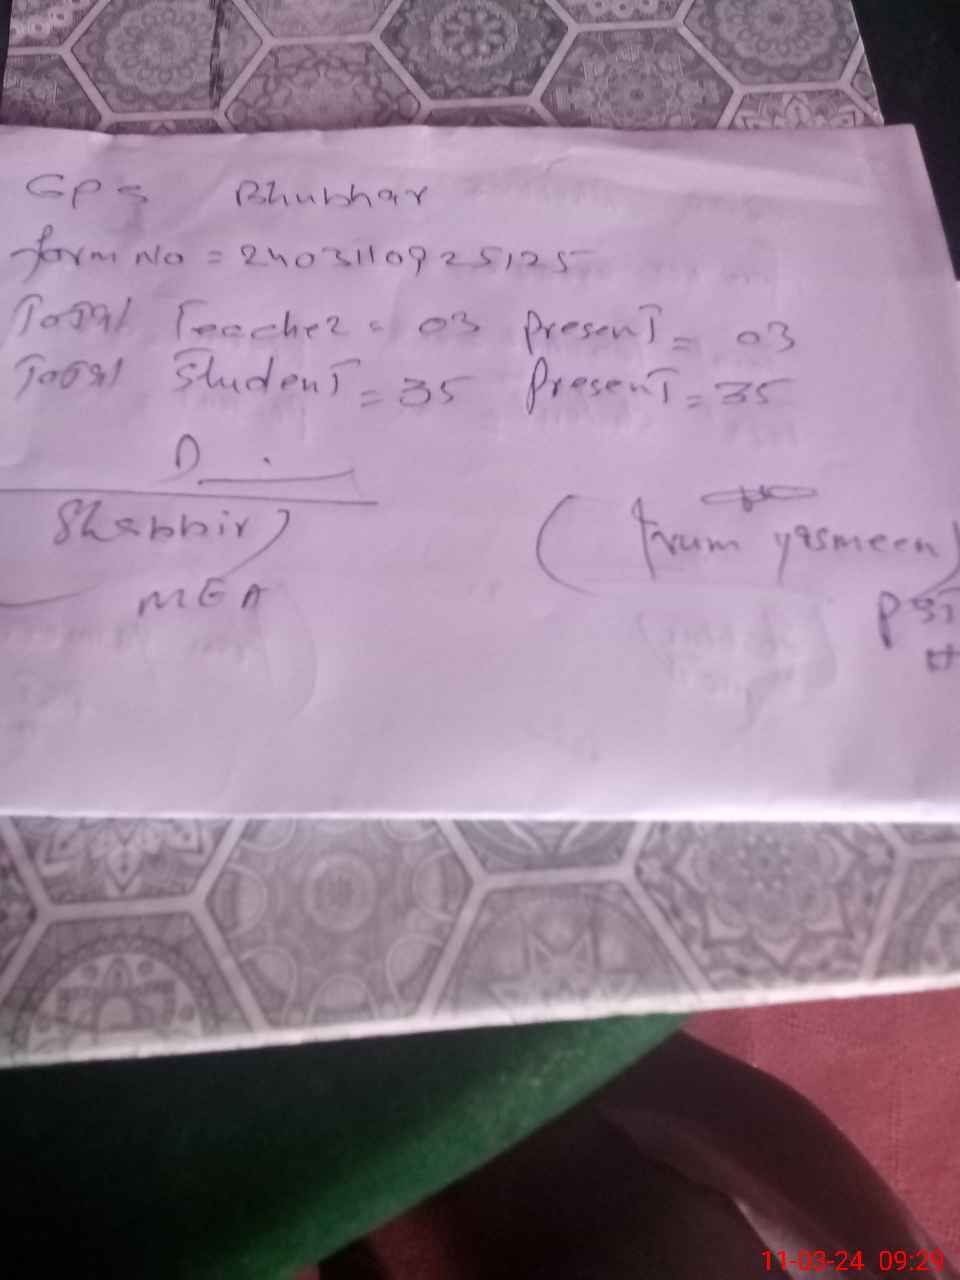 GPS Bhubhar
form No = 2403110925125
Total Teacher = 03 Present = 03
Total Student = 35 Present = 35
Shabbir)
MEA
(Irum yasmeen)
PST
11-03-24 09:29